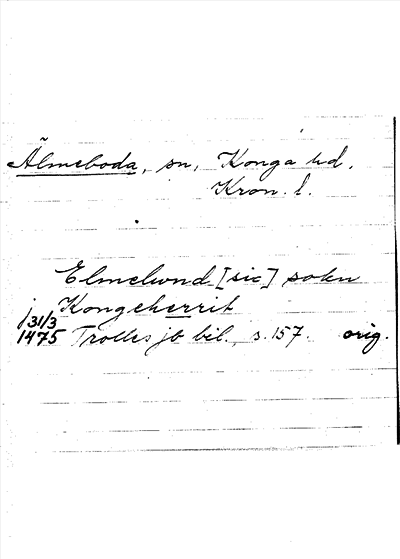 Älmeboda, sn, Konga hd.
Kron. l.
Elmelund [sic] sokn
j Kongeherrit
31/3
1475 Trolles jb bil., s. 157. orig.